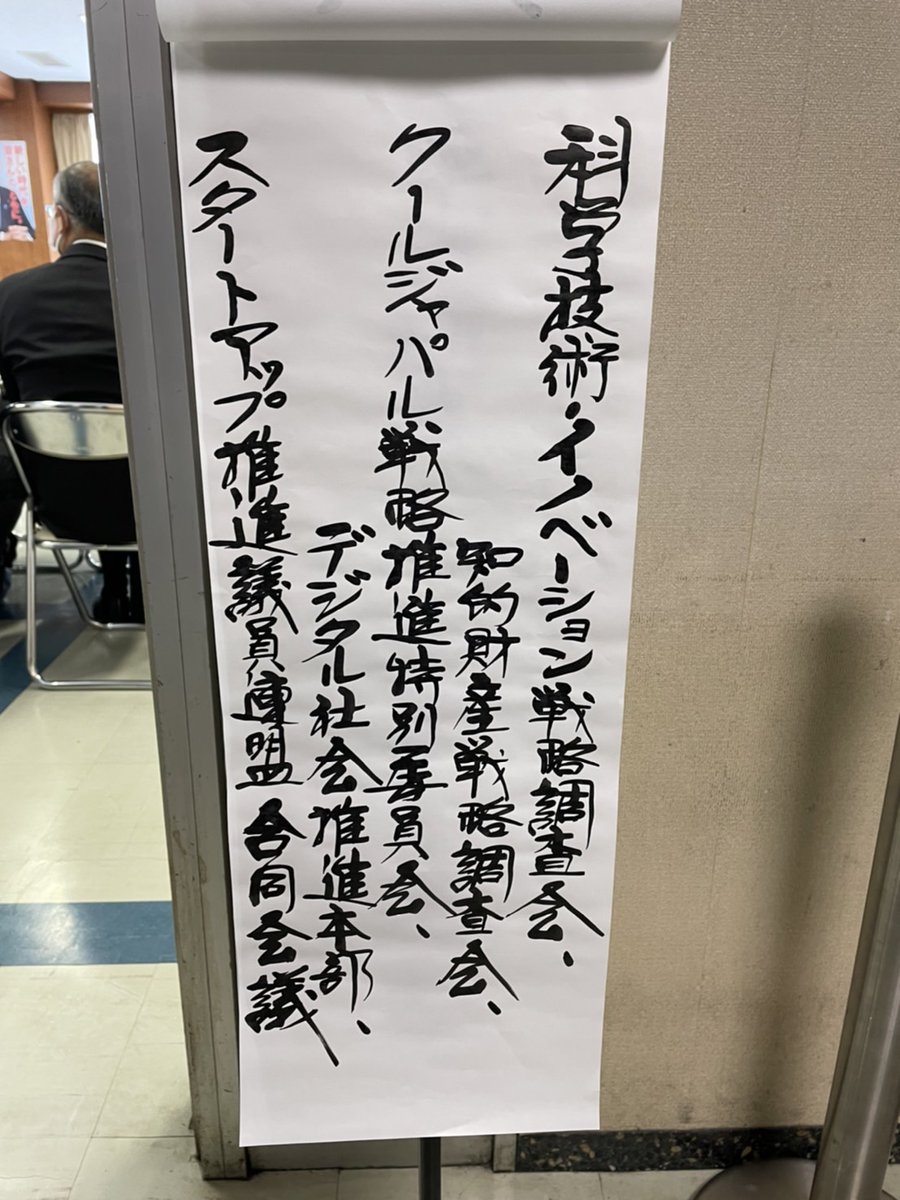 科学技術・イノベーション戦略調査会、
知的財産戦略調査会、
クールジャパル戦略推進特別委員会、
デジタル社会推進本部、
スタートアップ推進議員連盟 合同会議